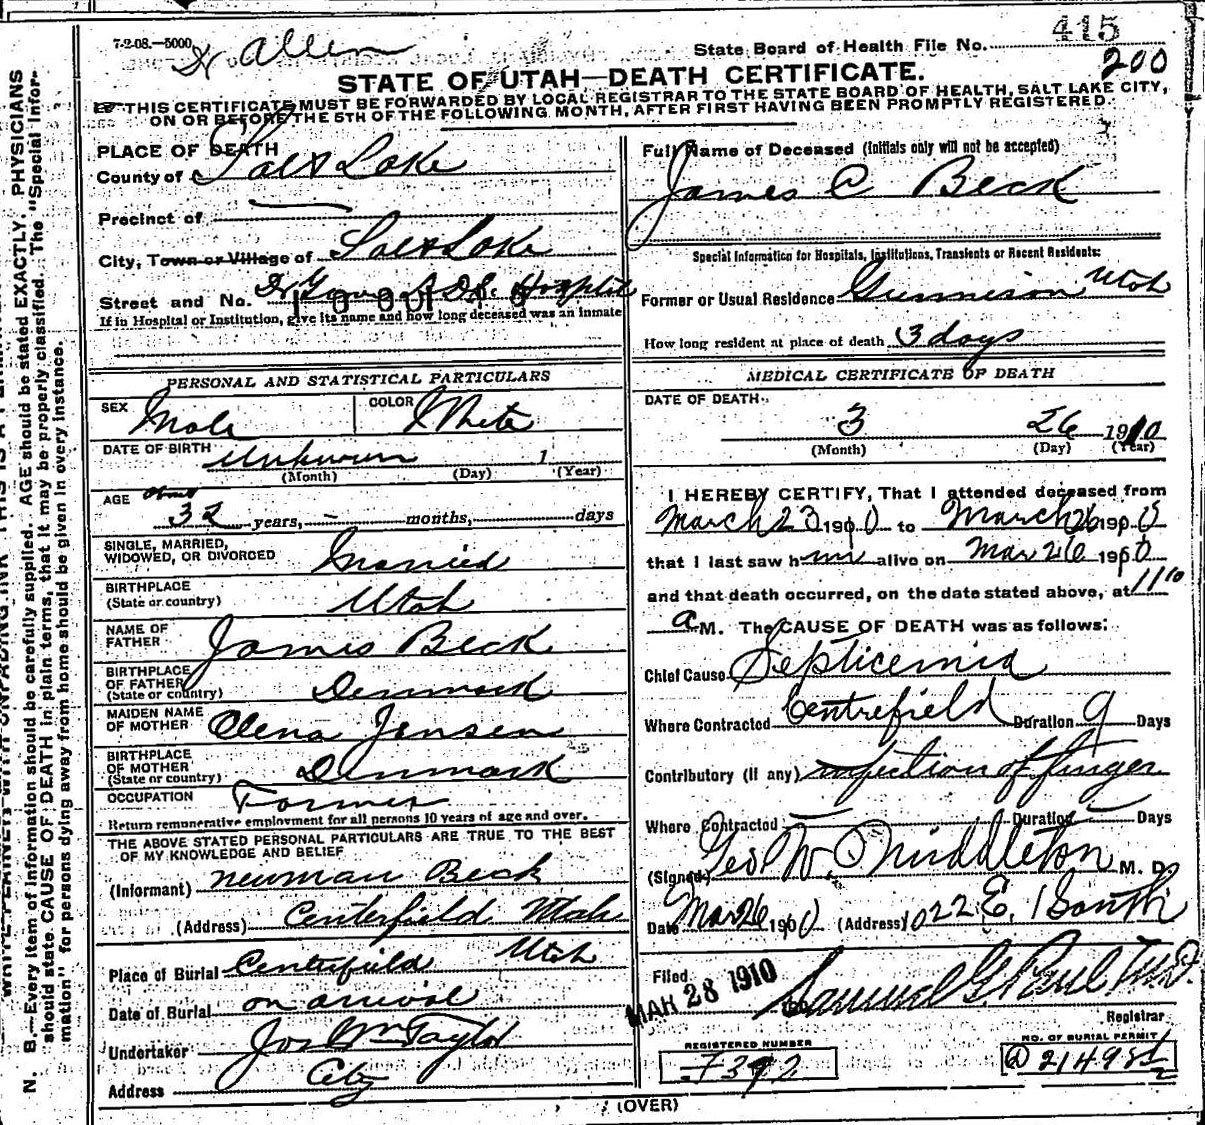 7-2-08.—5000 Allen
State Board of Health File No. 415
200
STATE OF UTAH—DEATH CERTIFICATE.
THIS CERTIFICATE MUST BE FORWARDED BY LOCAL REGISTRAR TO THE STATE BOARD OF HEALTH, SALT LAKE CITY,
ON OR BEFORE THE 5TH OF THE FOLLOWING MONTH, AFTER FIRST HAVING BEEN PROMPTLY REGISTERED.
PLACE OF DEATH
County of Salt Lake
Precinct of —
City, Town or Village of Salt Lake
Street and No. L.D.S. Hospital
If in Hospital or Institution, give its name and how long deceased was an inmate
PERSONAL AND STATISTICAL PARTICULARS
SEX Male COLOR White
DATE OF BIRTH Unknown 1
(Month) (Day) (Year)
AGE about 32 years, — months, days
SINGLE, MARRIED,
WIDOWED, OR DIVORCED Married
BIRTHPLACE
(State or country) Utah
NAME OF
FATHER James Beck
BIRTHPLACE
OF FATHER
(State or country) Denmark
MAIDEN NAME
OF MOTHER Olena Jensen
BIRTHPLACE
OF MOTHER
(State or country) Denmark
OCCUPATION Farmer
Return remunerative employment for all persons 10 years of age and over.
THE ABOVE STATED PERSONAL PARTICULARS ARE TRUE TO THE BEST
OF MY KNOWLEDGE AND BELIEF
(Informant) Newman Beck
(Address) Centerfield Utah
Place of Burial Centerfield Utah
Date of Burial on arrival
Undertaker Jos Wm Taylor
Address City
Full Name of Deceased (Initials only will not be accepted)
James C Beck
Special Information for Hospitals, Institutions, Transients or Recent Residents:
Former or Usual Residence Gunnison Utah
How long resident at place of death 3 days
MEDICAL CERTIFICATE OF DEATH
DATE OF DEATH
3 26 1910
(Month) (Day) (Year)
I HEREBY CERTIFY, That I attended deceased from
March 23 1910 to March 26 1910
that I last saw him alive on Mar 26 1910
and that death occurred, on the date stated above, at 11 10
a M. The CAUSE OF DEATH was as follows:
Chief Cause Septicemia
Where Contracted Centrefield Duration 9 Days
Contributory (if any) infection of finger
Where Contracted — Duration — Days
(Signed) Geo W. Middleton M. D.
Date Mar 26 1910 (Address) 1022 E. 1 South
Filed MAR 28 1910 Samuel G. Paul M.D.
Registrar
REGISTERED NUMBER
F392
NO. OF BURIAL PERMIT
(OVER)
N. B.—Every item of information should be carefully supplied. AGE should be stated EXACTLY. PHYSICIANS
should state CAUSE OF DEATH in plain terms, that it may be properly classified. The "Special Infor-
mation" for persons dying away from home should be given in every instance.